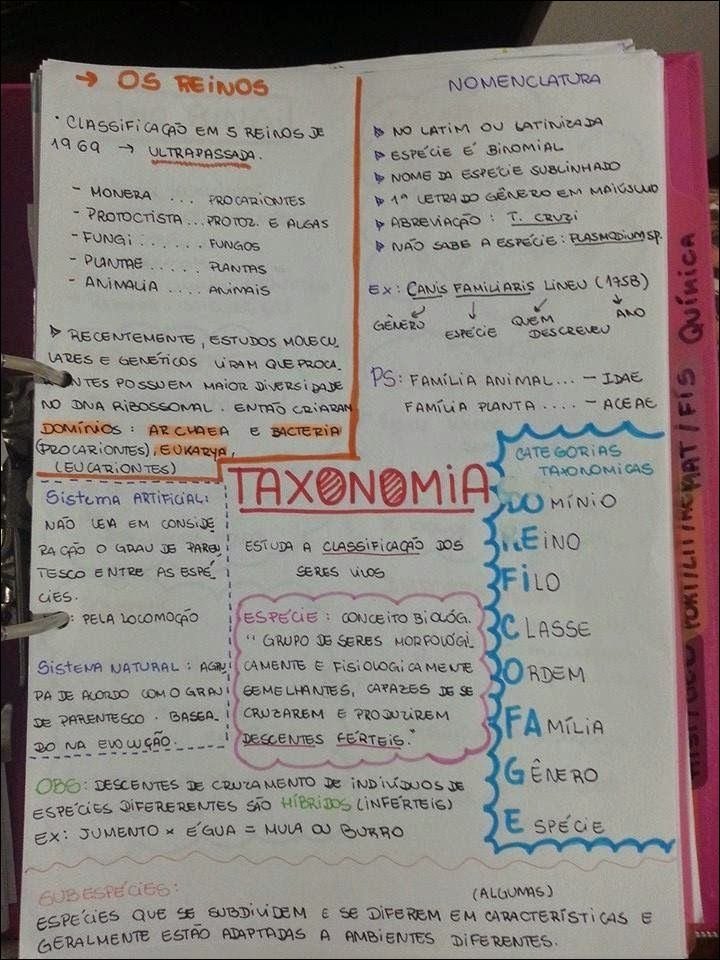 → OS REINOS
• CLASSIFICAÇÃO EM 5 REINOS DE
1969 → ULTRAPASSADA.
- MONERA ... PROCARIONTES
- PROTOCTISTA ... PROTOZ. E ALGAS
- FUNGI ...... FUNGOS
- PLANTAE ..... PLANTAS
- ANIMALIA .... ANIMAIS
▷ RECENTEMENTE, ESTUDOS MOLECU_
LARES E GENÉTICOS VIRAM QUE PROCA_
NTES POSSUEM MAIOR DIVERSIDADE
NO DNA RIBOSSOMAL. ENTÃO CRIARAM
DOMÍNIOS: ARCHAEA E BACTERIA
(PROCARIONTES), EUKARYA,
(EUCARIONTES)
NOMENCLATURA
▷ NO LATIM OU LATINIZADA
▷ ESPÉCIE É BINOMIAL
▷ NOME DA ESPÉCIE SUBLINHADO
▷ 1ª LETRA DO GÊNERO EM MAIÚSCULO
▷ ABREVIAÇÃO: T. CRUZI
▷ NÃO SABE A ESPÉCIE: PLASMODIUM SP.
EX: CANIS FAMILIARIS LINEU (1758)
GÊNERO ESPÉCIE QUEM DESCREVEU ANO
PS: FAMÍLIA ANIMAL ... - IDAE
FAMÍLIA PLANTA .... - ACEAE
TAXONOMIA
ESTUDA A CLASSIFICAÇÃO DOS
SERES VIVOS
SISTEMA ARTIFICIAL:
NÃO LEVA EM CONSIDE_
RAÇÃO O GRAU DE PAREN_
TESCO ENTRE AS ESPÉ_
CIES.
: PELA LOCOMOÇÃO
SISTEMA NATURAL: AGRU_
PA DE ACORDO COM O GRAU
DE PARENTESCO. BASEA_
DO NA EVOLUÇÃO.
ESPÉCIE: CONCEITO BIOLÓG.
"GRUPO DE SERES MORFOLÓGI_
CAMENTE E FISIOLOGICAMENTE
SEMELHANTES, CAPAZES DE SE
CRUZAREM E PRODUZIREM
DESCENTES FÉRTEIS."
CATEGORIAS
TAXONOMICAS
DOMÍNIO
REINO
FILO
CLASSE
ORDEM
FAMÍLIA
GÊNERO
ESPÉCIE
OBS: DESCENTES DE CRUZAMENTO DE INDIVÍDUOS DE
ESPÉCIES DIFERERENTES SÃO HÍBRIDOS (INFÉRTEIS)
EX: JUMENTO × ÉGUA = MULA OU BURRO
SUBESPÉCIES: (ALGUMAS)
ESPÉCIES QUE SE SUBDIVIDEM E SE DIFEREM EM CARACTERÍSTICAS E
GERALMENTE ESTÃO ADAPTADAS A AMBIENTES DIFERENTES.
MAT/FIS QUÍMICA
PORT/LIT/RE